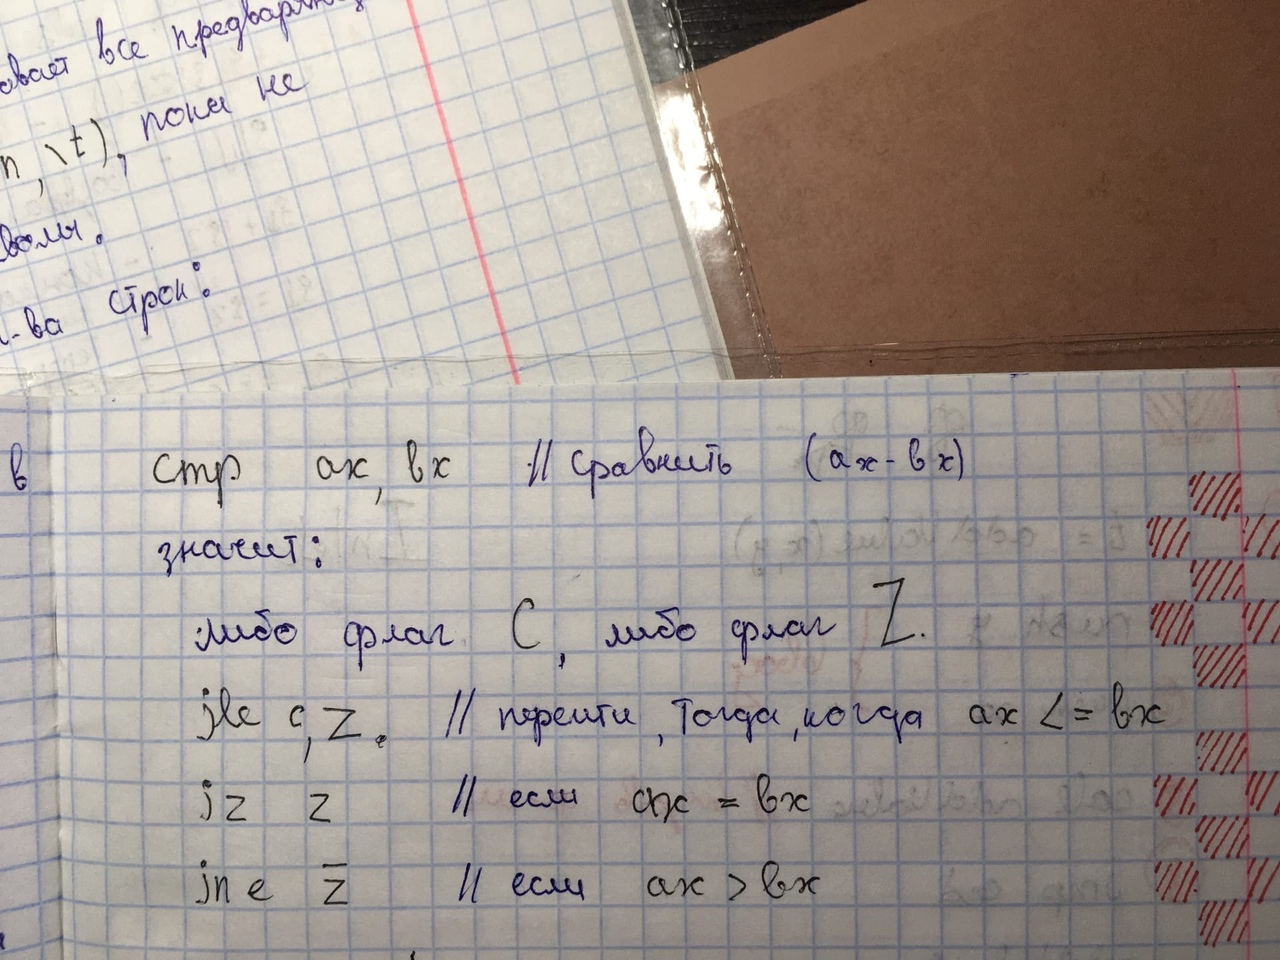 все
n, \t), пока не
строк:
в
cmp ax, bx // сравнить (ax - bx)
значит:
либо флаг C, либо флаг Z.
jle c, Z. // перейти, тогда, когда ax <= bx
jz z // если ax = bx
jne z̅ // если ax > bx